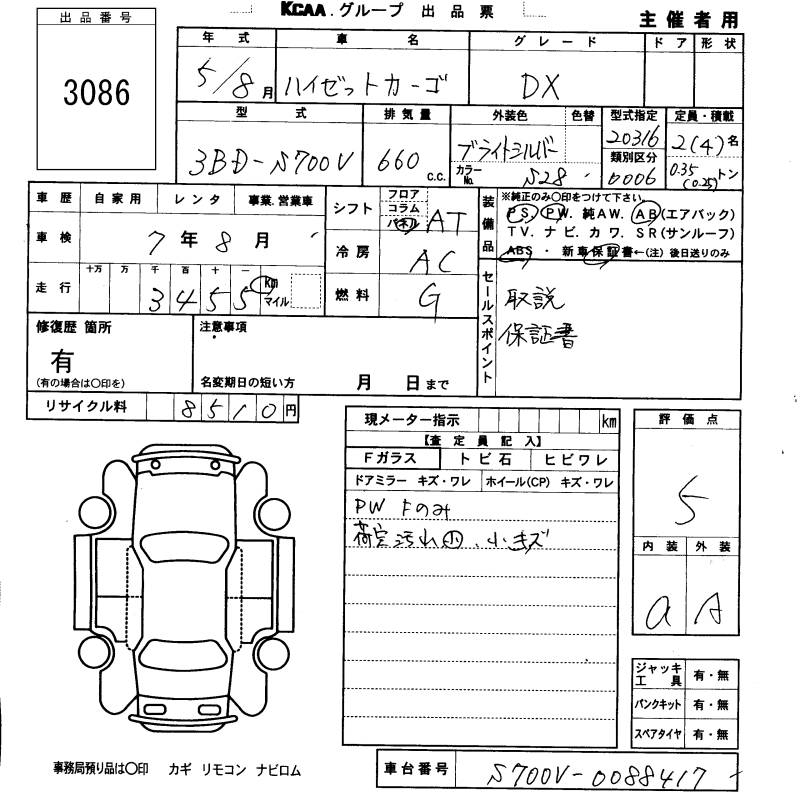 KCAA.グループ 出品票
主催者用
出品番号
3086
年式 車名 グレード ドア 形状
5/8月 ハイゼットカーゴ DX
型式 排気量 外装色 色替 型式指定 定員・積載
3BD-S700V 660 C.C. ブライトシルバー 20316 2(4)名
カラーNo. S28 類別区分 0006 0.35(0.25)トン
車歴 自家用 レンタ 事業.営業車
車検 7年8月
走行 十万 万 千 百 十 一
3455 km マイル
シフト フロア コラム パネル AT
冷房 AC
燃料 G
装備品 ※純正のみ〇印をつけて下さい。
PS. PW. 純AW. AB(エアバック)
TV. ナビ. カワ. SR(サンルーフ)
ABS ・ 新車保証書←(注) 後日送りのみ
セールスポイント
取説
保証書
修復歴 箇所
有
(有の場合は〇印を)
注意事項
名変期日の短い方 月 日まで
リサイクル料 8510円
現メーター指示 km
【査定員記入】
Fガラス トビ石 ヒビワレ
ドアミラー キズ・ワレ ホイール(CP) キズ・ワレ
PW Fのみ
荷室汚れ小、小キズ
評価点
5
内装 外装
a A
ジャッキ工具 有・無
パンクキット 有・無
スペアタイヤ 有・無
事務局預り品は〇印 カギ リモコン ナビロム
車台番号 S700V-0088417